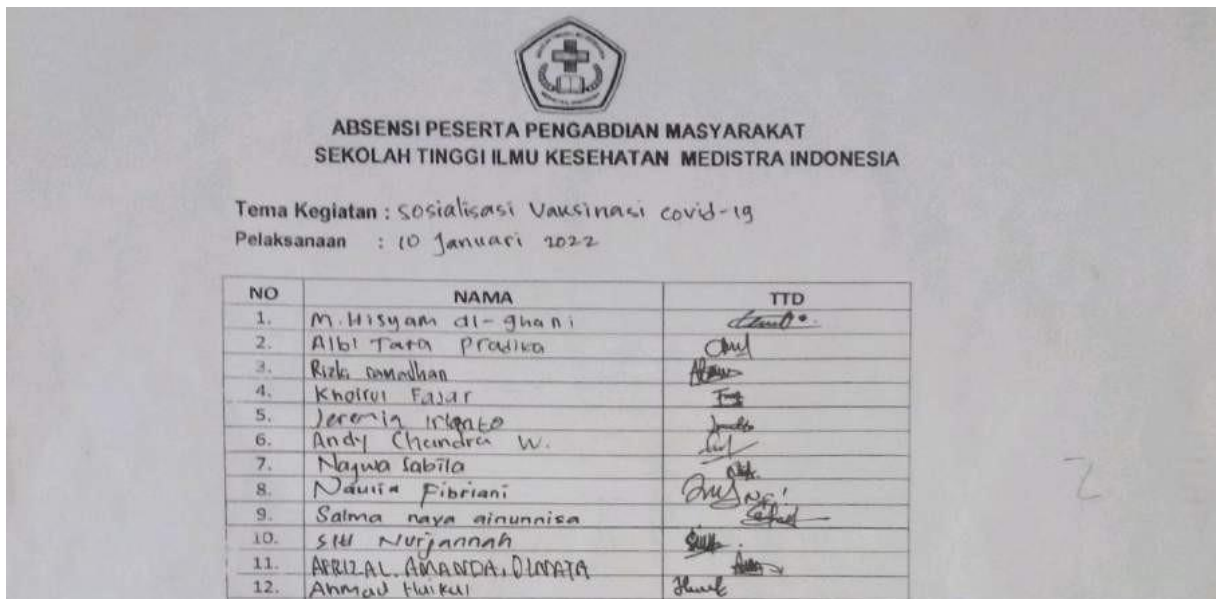 ABSENSI PESERTA PENGABDIAN MASYARAKAT
SEKOLAH TINGGI ILMU KESEHATAN MEDISTRA INDONESIA
Tema Kegiatan : Sosialisasi Vaksinasi covid-19
Pelaksanaan : 10 Januari 2022
NO NAMA TTD
1. M. Hisyam al-ghani
2. Albi Tara Pradika
3. Rizki ramadhan
4. Khoirul Fajar
5. Jeremia irianto
6. Andy Chandra W.
7. Najwa Sabila
8. Fibriani
9. Salma naya ainunnisa
10. Siti Nurjannah
11. AFRIZAL. AMANDA.
12. Ahmad Haikul
2